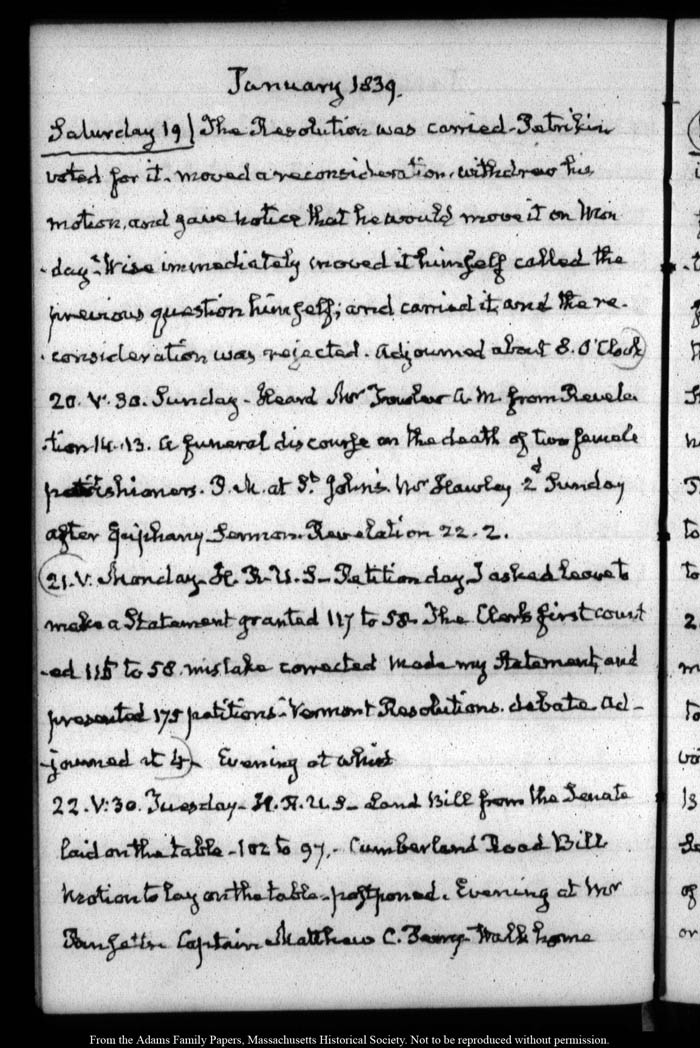 January 1839.
Saturday 19 | The Resolution was carried - Petrikin
voted for it. moved a reconsideration, withdrew his
motion, and gave notice that he would move it on Mon
-day - Wise immediately moved it himself called the
previous question himself; and carried it, and the re-
-consideration was rejected. Adjourned about 8. O'Clock
20. V. 30. Sunday - Heard Mr Fowler A.M. from Revela
-tion 14.13. A funeral discourse on the death of two female
parishioners. P.M. at St. John's. Mr Hawley 2d Sunday
after Epiphany Sermon. Revelation 22. 2.
21. V. Monday - H. R. U. S - Petition day I asked leave to
make a Statement granted 117 to 58. The Clerk first count
-ed 115 to 58. mistake corrected Made my Statement, and
presented 175 petitions - Vermont Resolutions. debate Ad-
-journed at 4 - Evening at whist
22. V:30. Tuesday - H. R. U. S - Land Bill from the Senate
laid on the table - 102 to 97. - Cumberland Road Bill
Motion to lay on the table - postponed. Evening at Mr
Captain Matthew C. Perry - Walk home
From the Adams Family Papers, Massachusetts Historical Society. Not to be reproduced without permission.